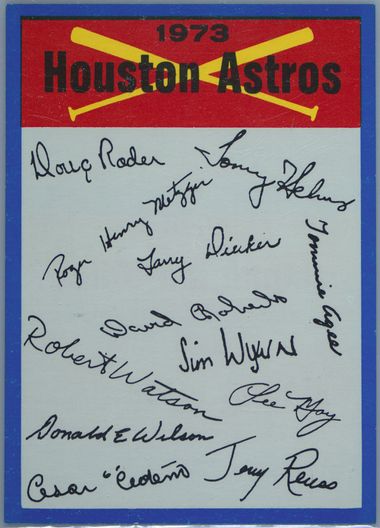 1973
Houston Astros
Doug Rader
Tommy Helms
Roger Henry Metzger
Larry Dierker
Tommie Agee
David Roberts
Jim Wynn
Robert Watson
Lee May
Donald E Wilson
Cesar "Cedeño
Jerry Reuss